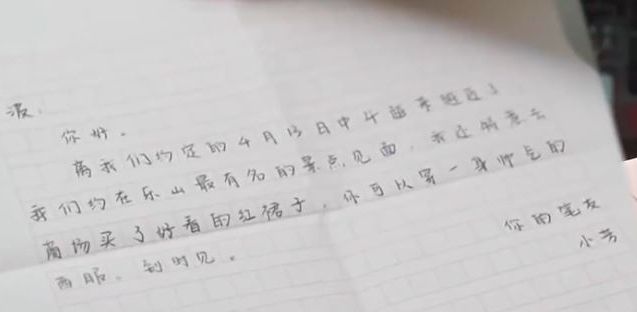 波.
你好.
离我们约定的4月13日中午越来越近了
我们约在乐山最有名的景点见面.我还特意去
商场买了好看的红裙子.你可以穿一身帅气的
西服.到时见.
你的笔友
小芳